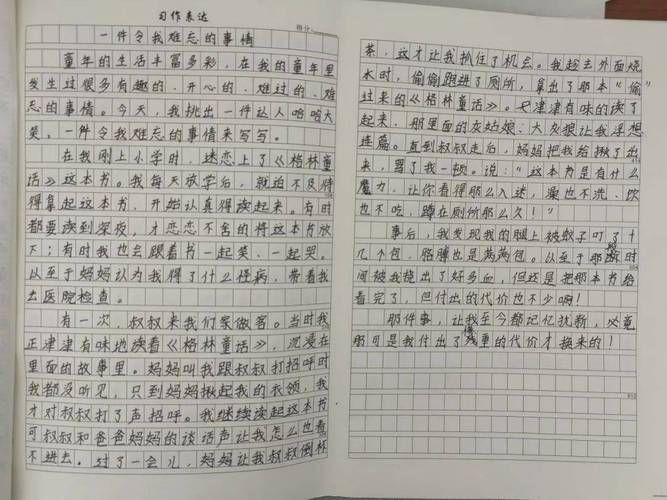 习作表达
得分:
一件令我难忘的事情
童年的生活丰富多彩，在我的童年里
发生过很多有趣的、开心的、难过的、难
忘的事情。今天，我挑出一件让人哈哈大
笑、一件令我难忘的事情来写写。
在我刚上小学时，迷恋上了《格林童
话》这本书。我每天放学后，就迫不及待
得拿起这本书，开始认真得读起来。有时
都要读到深夜，才恋恋不舍的将这本书放
下；有时我也会跟着书一起笑、一起哭。
以至于妈妈认为我得了什么怪病，带着我
去医院检查。
有一次，叔叔来我们家做客。当时我
正津津有味地读着《格林童话》，沉浸在
里面的故事里。妈妈叫我跟叔叔打招呼时
我都没听见，只到妈妈揪起我的衣领，我
才对叔叔打了声招呼。我继续读起这本书
可叔叔和爸爸妈妈的谈话声让我怎么也看
不进去。过了一会儿，妈妈让我叔叔倒杯
茶，这才让我抓住了机会。我趁去外面烧
水时，偷偷跑进了厕所，拿出了那本“偷”
过来的《格林童话》。七津津有味的读了
起来，那里面的灰姑娘、大灰狼让我浮想
连篇。直到叔叔走后，妈妈把我给揪了出
来，骂了我一顿。说：“这本书是有什么
魔力，让你看得那么入迷，澡也不洗、饮
也不吃，蹲在厕所那么久！”
事后，我发现我的腿上被蚊子叮了十
几个包，胳膊也是满两包。以至于那段时
间被我挠出了好多血，但还是把那本书给
看完了，但付出的代价也不少啊！
那件事，让我至今都记忆犹新，必竟
那可是我付出了惨重的代价才换来的！